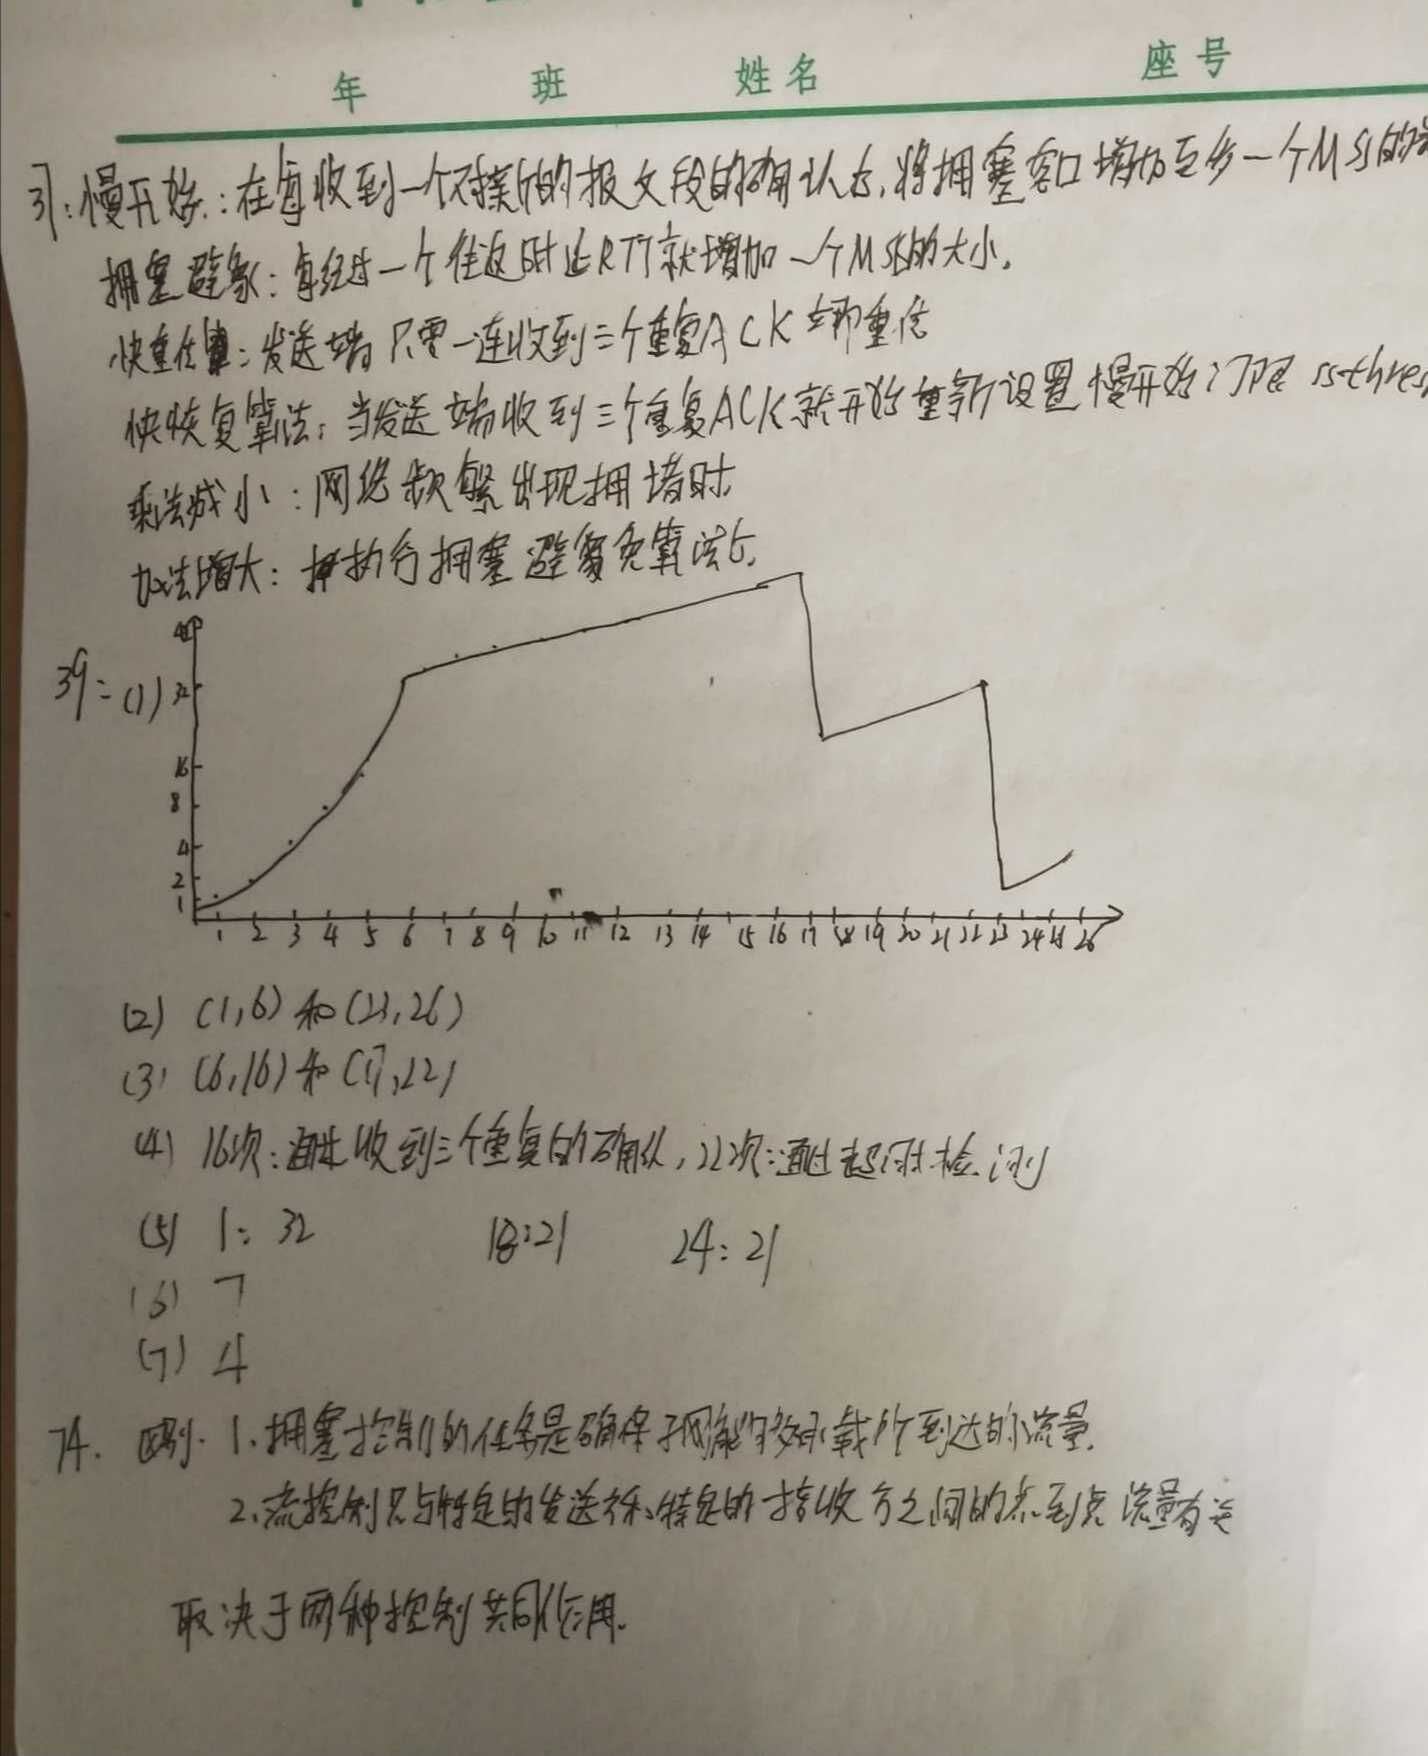 年 班 姓名 座号
37: 慢开始: 在每收到一个对新的报文段的确认后,将拥塞窗口增加至多一个MSS的
拥塞避免: 每经过一个往返时延RTT就增加一个MSS的大小。
快重传: 发送端只要一连收到三个重复ACK立即重传
快恢复算法: 当发送端收到三个重复ACK就开始重新设置慢开始门限 ssthres
乘法减小: 网络频繁出现拥塞时
加法增大: 执行拥塞避免算法后.
39: (1)
32
16
8
4
2
1
1 2 3 4 5 6 7 8 9 10 11 12 13 14 15 16 17 18 19 20 21 22 23 24 25 26
(2) (1,6) 和 (23,26)
(3) (6,16) 和 (17,22)
(4) 16次: 通过收到三个重复的确认, 22次: 通过超时检测
(5) 1: 32 18:21 24: 21
(6) 7
(7) 4
74. 区别. 1.拥塞控制的任务是确保子网能够承载所到达的流量.
2.流控制只与特定的发送方和特定的接收方之间的点到点流量有关
取决于两种控制共同作用.